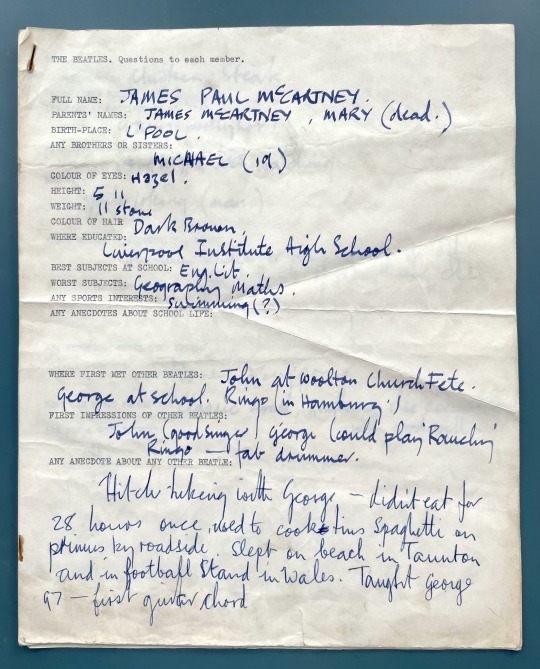 THE BEATLES. Questions to each member.
FULL NAME: JAMES PAUL McCARTNEY.
PARENTS' NAMES: JAMES McCARTNEY, MARY (dead.)
BIRTH-PLACE: L'POOL.
ANY BROTHERS OR SISTERS:
MICHAEL (19)
COLOUR OF EYES: Hazel.
HEIGHT: 5 11
WEIGHT: 11 stone
COLOUR OF HAIR Dark Brown.
WHERE EDUCATED:
Liverpool Institute High School.
BEST SUBJECTS AT SCHOOL: Eng. Lit.
WORST SUBJECTS: Geography Maths.
ANY SPORTS INTERESTS: Swimming (?)
ANY ANECDOTES ABOUT SCHOOL LIFE:
WHERE FIRST MET OTHER BEATLES: John at Woolton Church Fete.
George at school. Ringo (in Hamburg!)
FIRST IMPRESSIONS OF OTHER BEATLES:
John (good singer) George (could play 'Raunchy'
Ringo — fab drummer.
ANY ANECDOTE ABOUT ANY OTHER BEATLE:
Hitch hiking with George — didn't eat for
28 hours once, used to cook tins Spaghetti on
primus by roadside. Slept on beach in Taunton
and in football stand in Wales. Taught George
G7 — first guitar chord